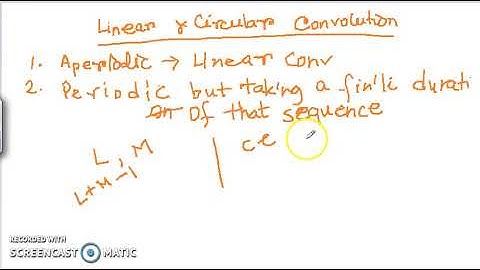 Linear & Circular Convolution
1. Aperiodic → Linear Conv
2. Periodic but taking a finite durati
on Of that sequence
L, M
L+M-1
ce
RECORDED WITH
SCREENCAST MATIC